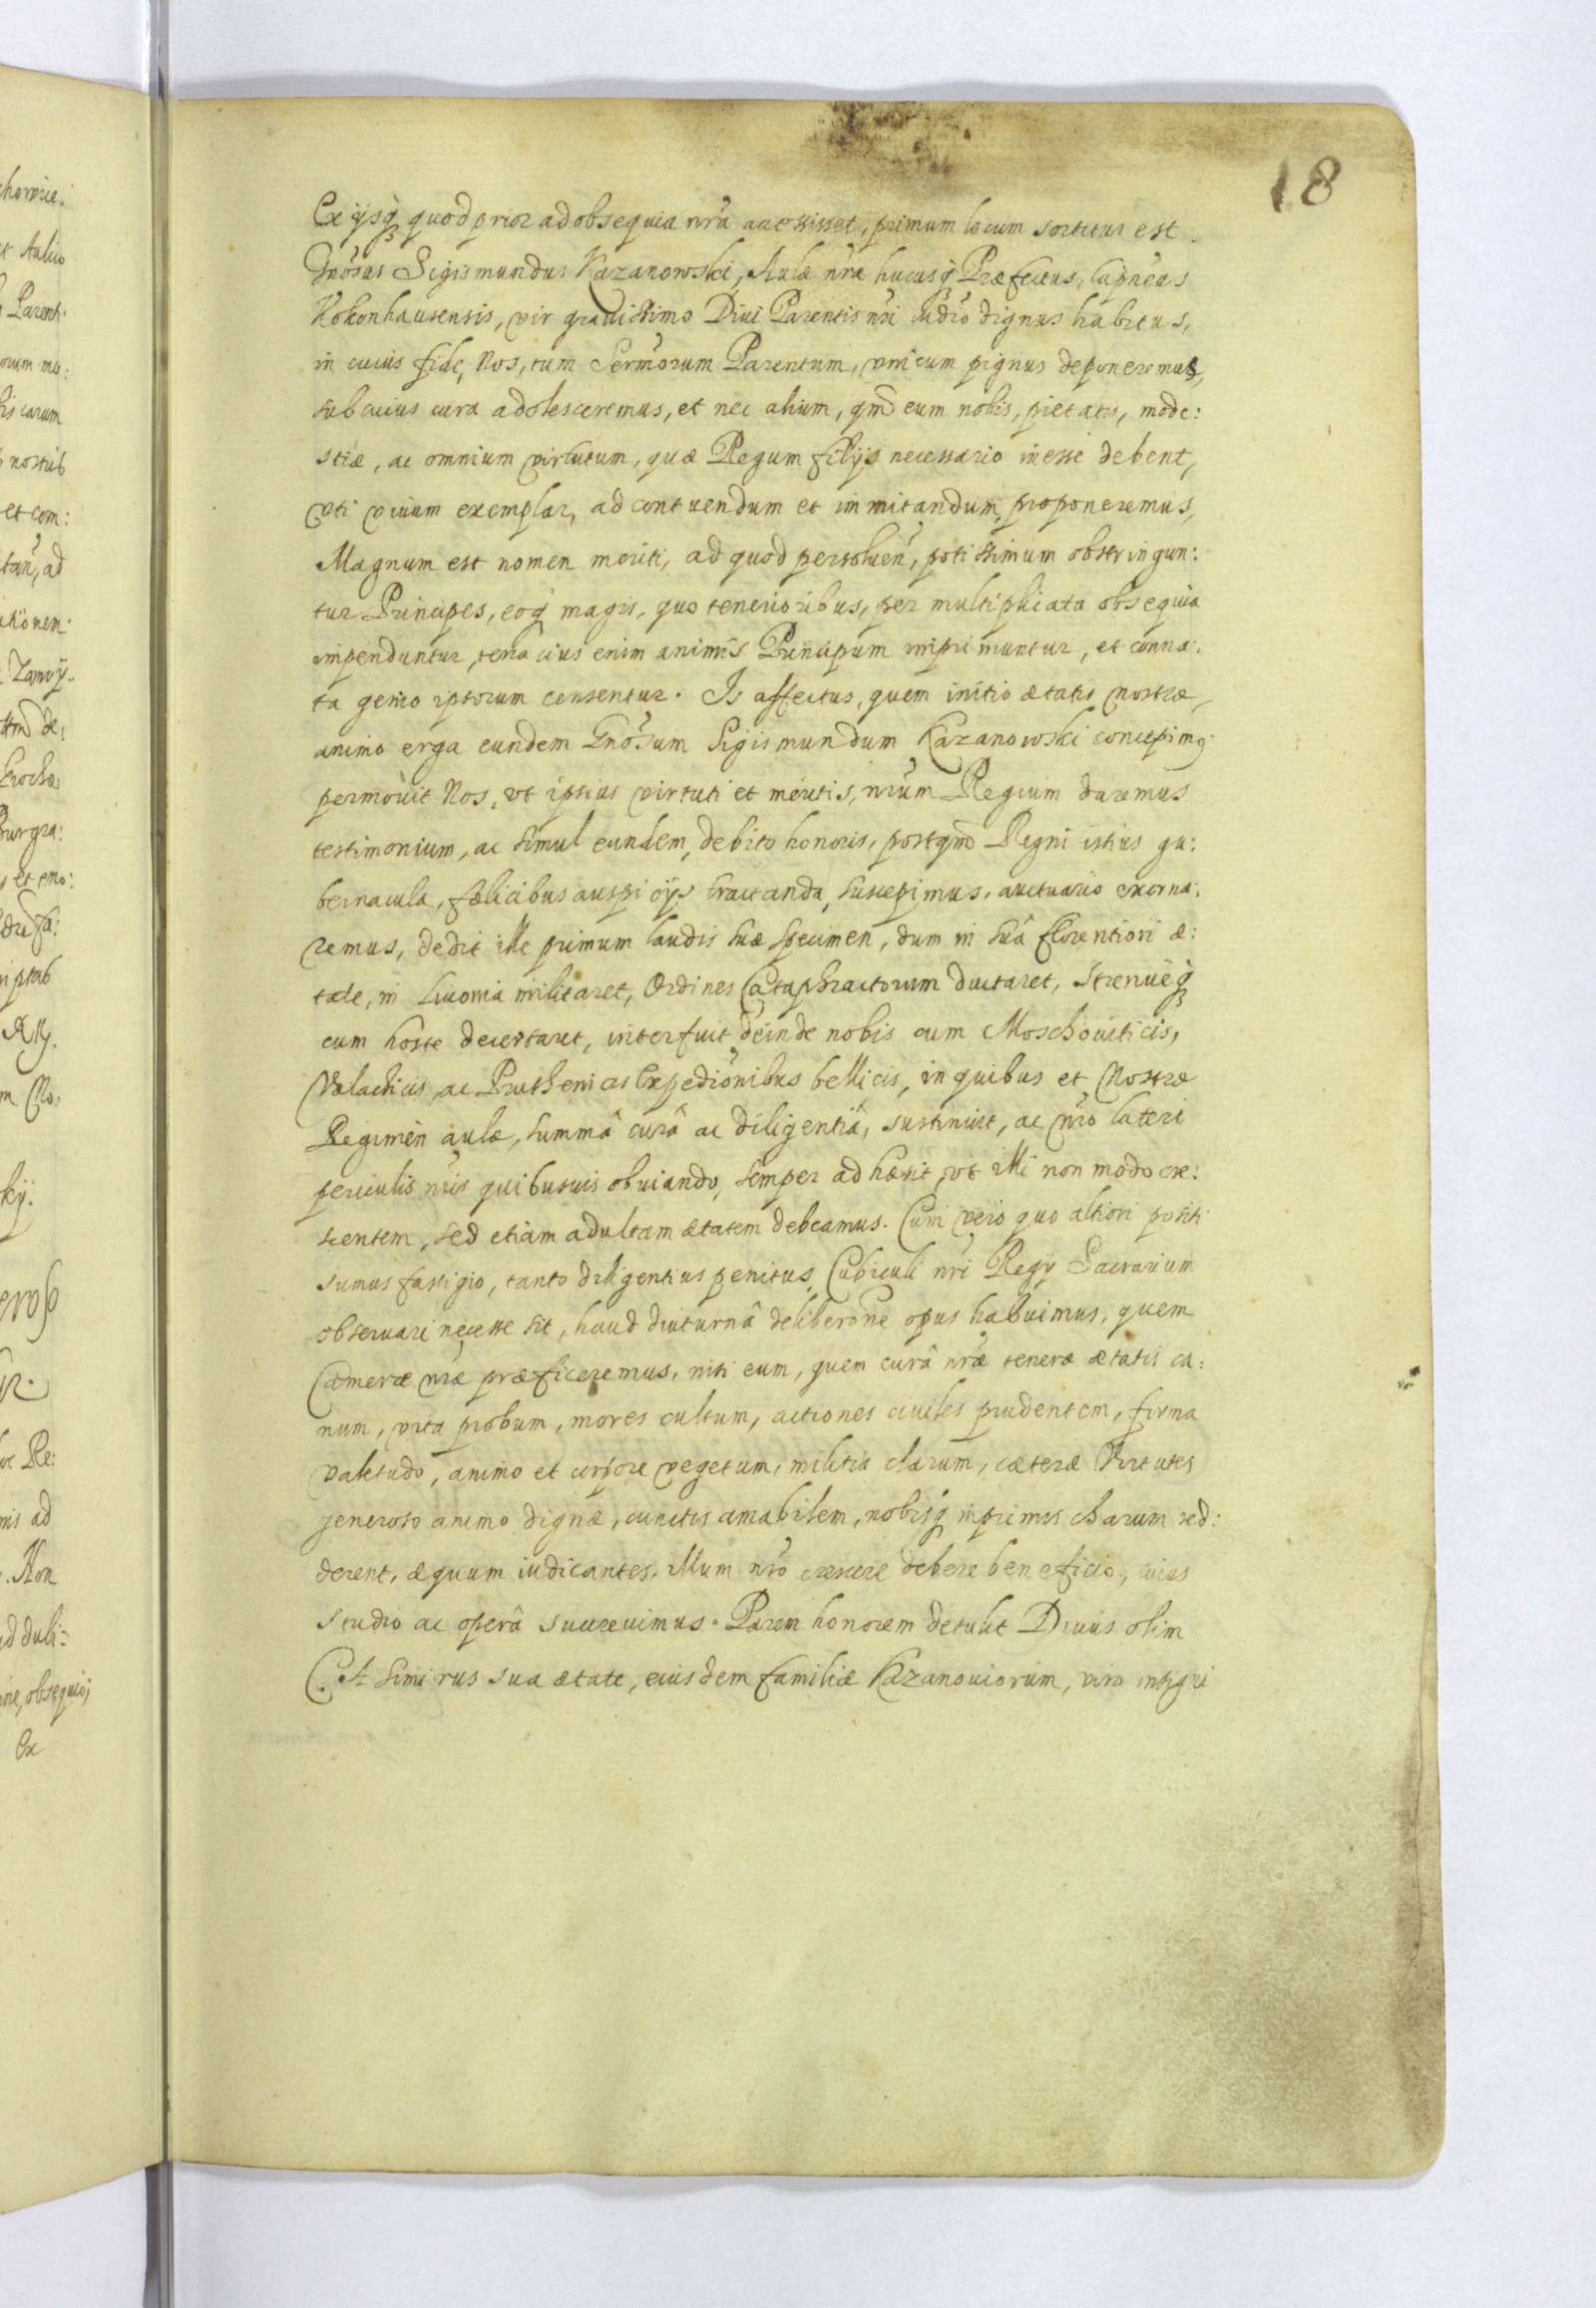 18
Ex ijsq̃ quod prior ad obsequia nr̃a accessisset, primum locum sortitus est
Gnõsus Sigismundus Kazanowski, Aulæ nr̃æ hucusq̃ Præfectus, Capneus
Kokonhausensis, vir grauissimo Diui Parentis nr̃i iudĩo dignus habitus,
in cuius fide, Nos, tum Sermõrum Parentum, vnicum pignus deponeremus,
sub cuius cura adolesceremus, et nec alium, qm̃ eum nobis, pietatis, mode:
stiæ, ac omnium virtutum, quæ Regum filijs necessario inesse debent,
vti viuum exemplar, ad contuendum et immitandum proponeremus,
Magnum est nomen meriti, ad quod persoluen̄, potissimum obstringun:
tur Principes, eoq̃ magis, quo tenerioribus, per multiplicata obsequia
impenduntur, tenacius enim animis Principum imprimuntur, et conna:
ta genio ipsorum censentur. Is affectus, quem initio ætatis nostræ,
animo erga eundem Gnõsum Sigismundum Kazanowski concepimg
permouit Nos, vt ipsius virtuti et meritis, nr̃um Regium daremus
testimonium, ac simul eundem, debito honoris, postqm̃ Regni istius gu:
bernacula, fælicibus auspicijs tractanda, suscepimus, auctuario exorna:
remus, dedit ille primum laudis suæ specimen, dum in suâ florentiori æ:
tate, in Liuonia militaret, Ordines Cataphractorum ductaret, Strenueq̃
cum hoste decertaret, interfuit deinde nobis cum Moschouiticis,
Valachicis, ac Pruthenicis Expediõnibus bellicis, in quibus et Nostræ
Regimen aulæ, summâ curâ ac diligentiâ, sustinuit, ac nr̃o lateri
periculis nr̃is quibusuis obuiando, semper adhæsit, vt illi non modo cre:
scentem, sed etiam adultam ætatem debeamus. Cum vero quo altiori positi
sumus fastigio, tanto diligentius penitus, Cubiculi nr̃i Regij Sacrarium
obseruari necesse sit, haud diuturnâ deliberõne opus habuimus, quem
Cameræ nr̃æ præficeremus, nisi eum, quem curâ nr̃æ teneræ ætatis ca:
num, vita probum, mores cultum, actiones ciuiles prudentem, firma
valetudo, animo et corpore vegetum, militia clarum, cæteræ Virtutes
generoso animo dignæ, cunctis amabilem, nobisq̃ inprimis charum red:
derent, æquum iudicantes, illum nr̃o crescere debere beneficio, cuius
studio ac operâ succreuimus. Parem honorem detulit Diuus olim
Casimirus sua ætate, eiusdem familiæ Kazanouiorum, viro insigni